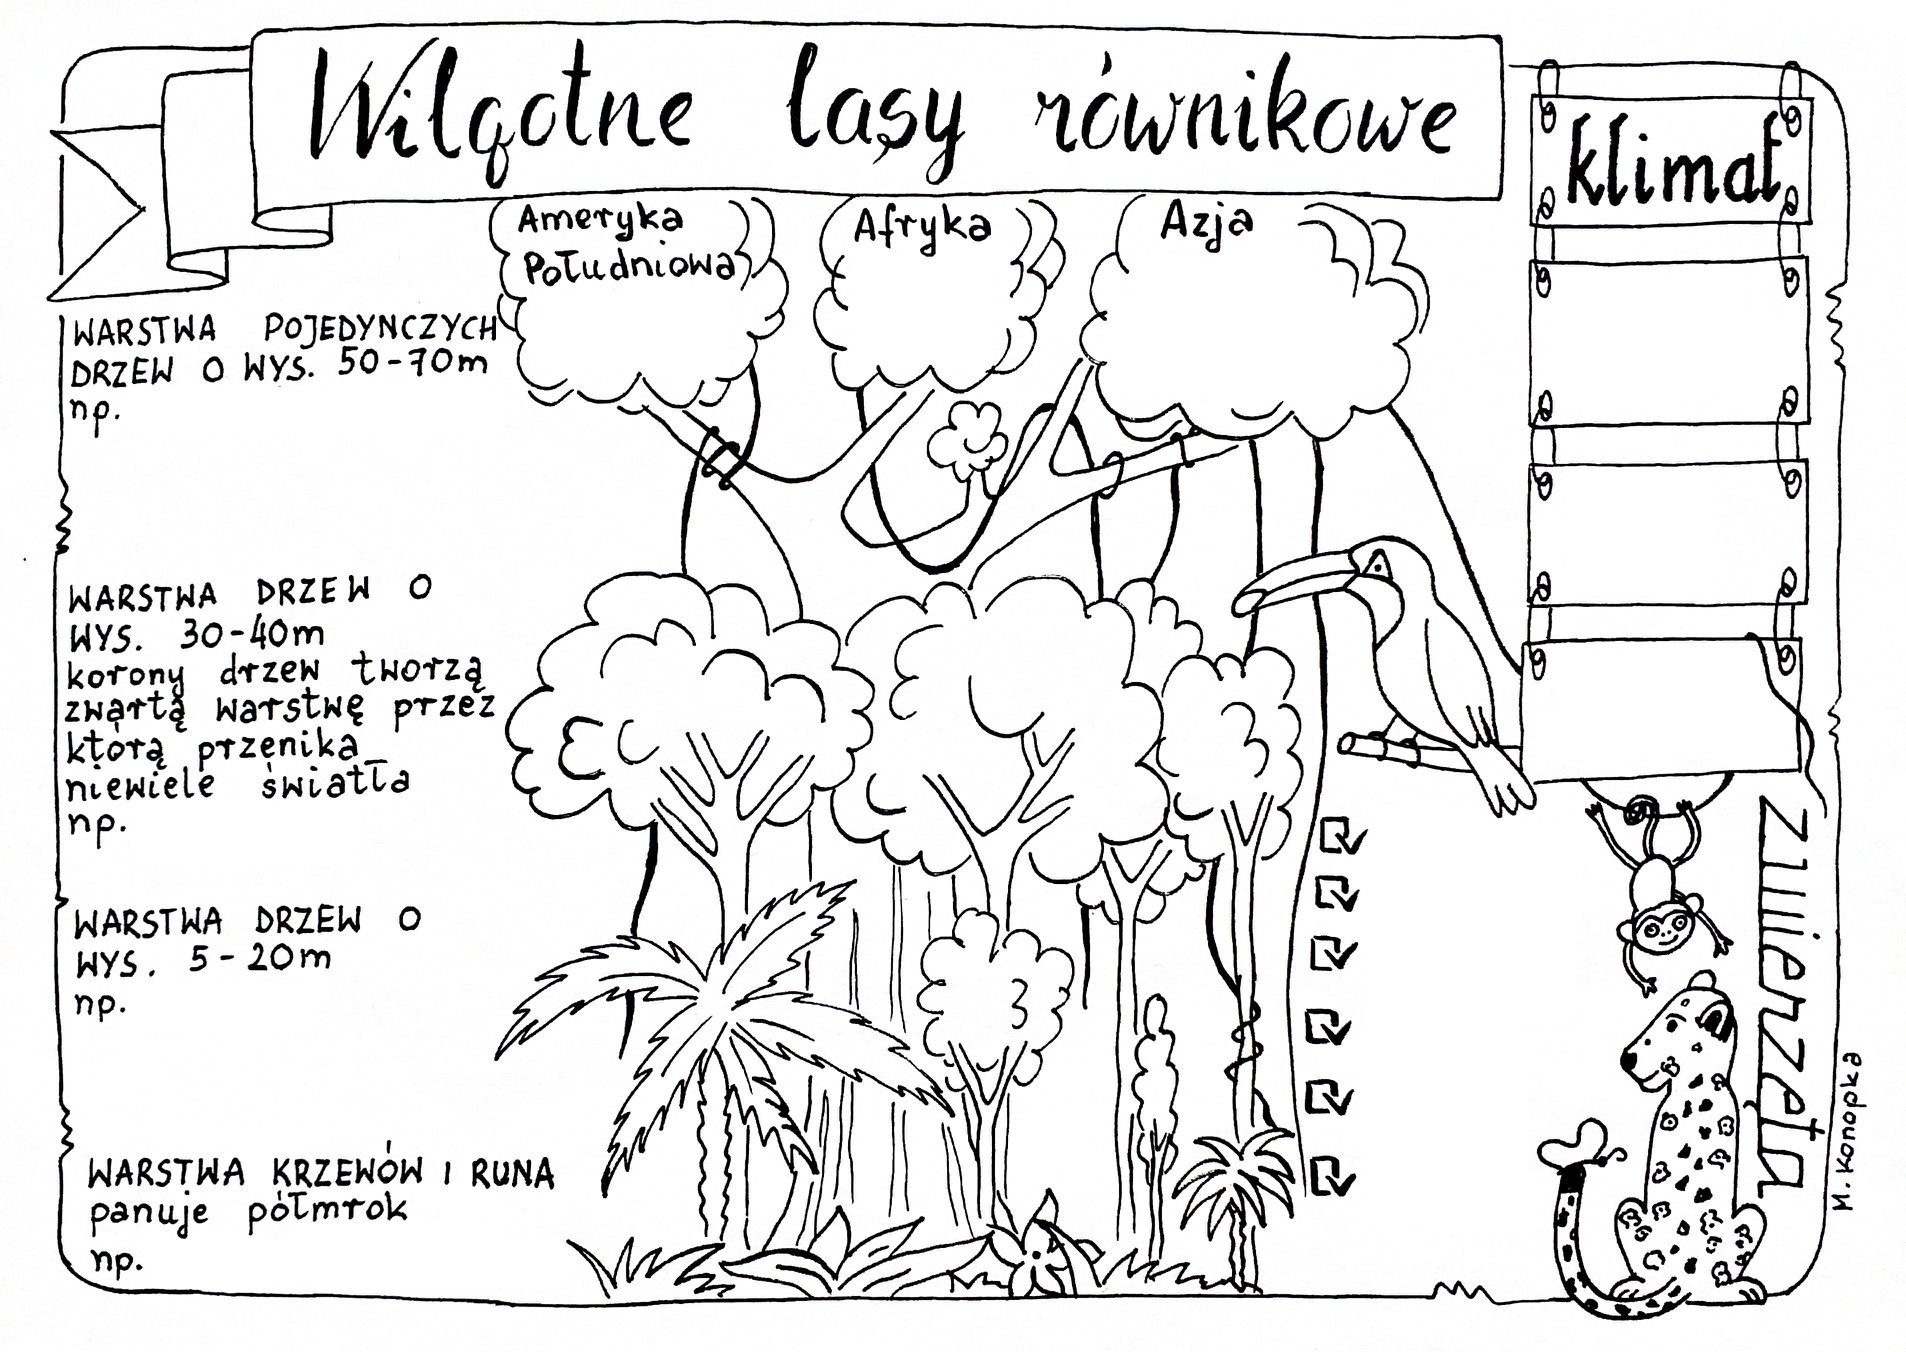 Wilgotne lasy równikowe
klimat
Ameryka
Południowa
Afryka
Azja
WARSTWA POJEDYNCZYCH
DRZEW O WYS. 50-70m
np.
WARSTWA DRZEW O
WYS. 30-40m
korony drzew tworzą
zwartą warstwę przez
którą przenika
niewiele światła
np.
WARSTWA DRZEW O
WYS. 5-20m
np.
WARSTWA KRZEWÓW I RUNA
panuje półmrok
np.
zwierzęta
M. Konopka